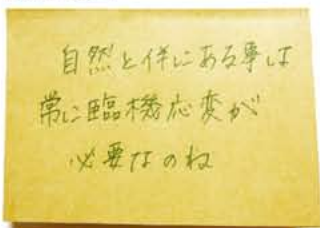 自然と伴にある事は
常に臨機応変が
必要なのね